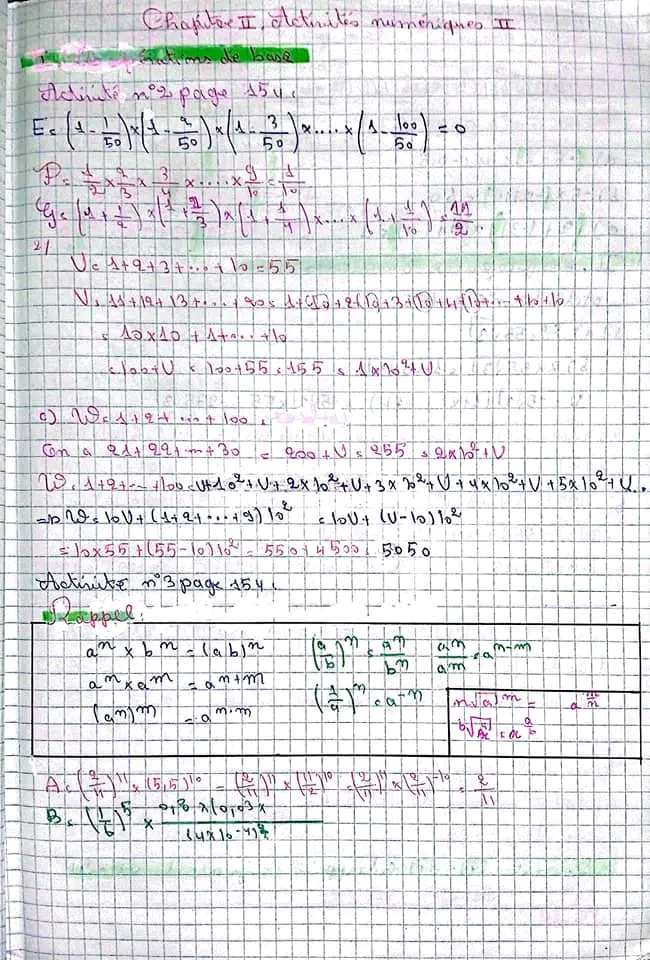 Chapitre II. Activités numériques II
rations de base
Activité n°2 page 154.
E = (1 - 1/50) × (1 - 2/50) × (1 - 3/50) × .... × (1 - 100/50) = 0
P = 1/2 × 2/3 × 3/4 × ..... × 9/10 = 1/10
G = (1 + 1/2) × (1 + 1/3) × (1 + 1/4) × ... × (1 + 1/10) = 11/2
2/
U = 1+2+3+...+10 = 55
V = 11+12+13+...+20 = 1+10+2+10+3+10+4+10+...+10+10
= 10×10 + 1+...+10
= 100+U = 100+55 = 155 = 1×10²+U
c) W = 1+2+...+100.
On a 21+22+...+30 = 200+U = 255 = 2×10²+U
W = 1+2+...+100 = U+10²+U+2×10²+U+3×10²+U+4×10²+U+5×10²+U...
=> W = 10U+(1+2+...+9)10² = 10U+(U-10)10²
= 10×55+(55-10)10² = 550+4500 = 5050
Activité n°3 page 154.
Rappel:
aⁿ × bⁿ = (ab)ⁿ (a/b)ⁿ = aⁿ/bⁿ aⁿ/aᵐ = aⁿ⁻ᵐ
aⁿ × aᵐ = aⁿ⁺ᵐ (1/a)ⁿ = a⁻ⁿ
(aⁿ)ᵐ = aⁿ·ᵐ
A = (2/11)¹¹ × (5,5)¹⁰ = (2/11)¹¹ × (11/2)¹⁰ = (2/11)¹¹ × (2/11)⁻¹⁰ = 2/11
B = (1/6)⁵ ×